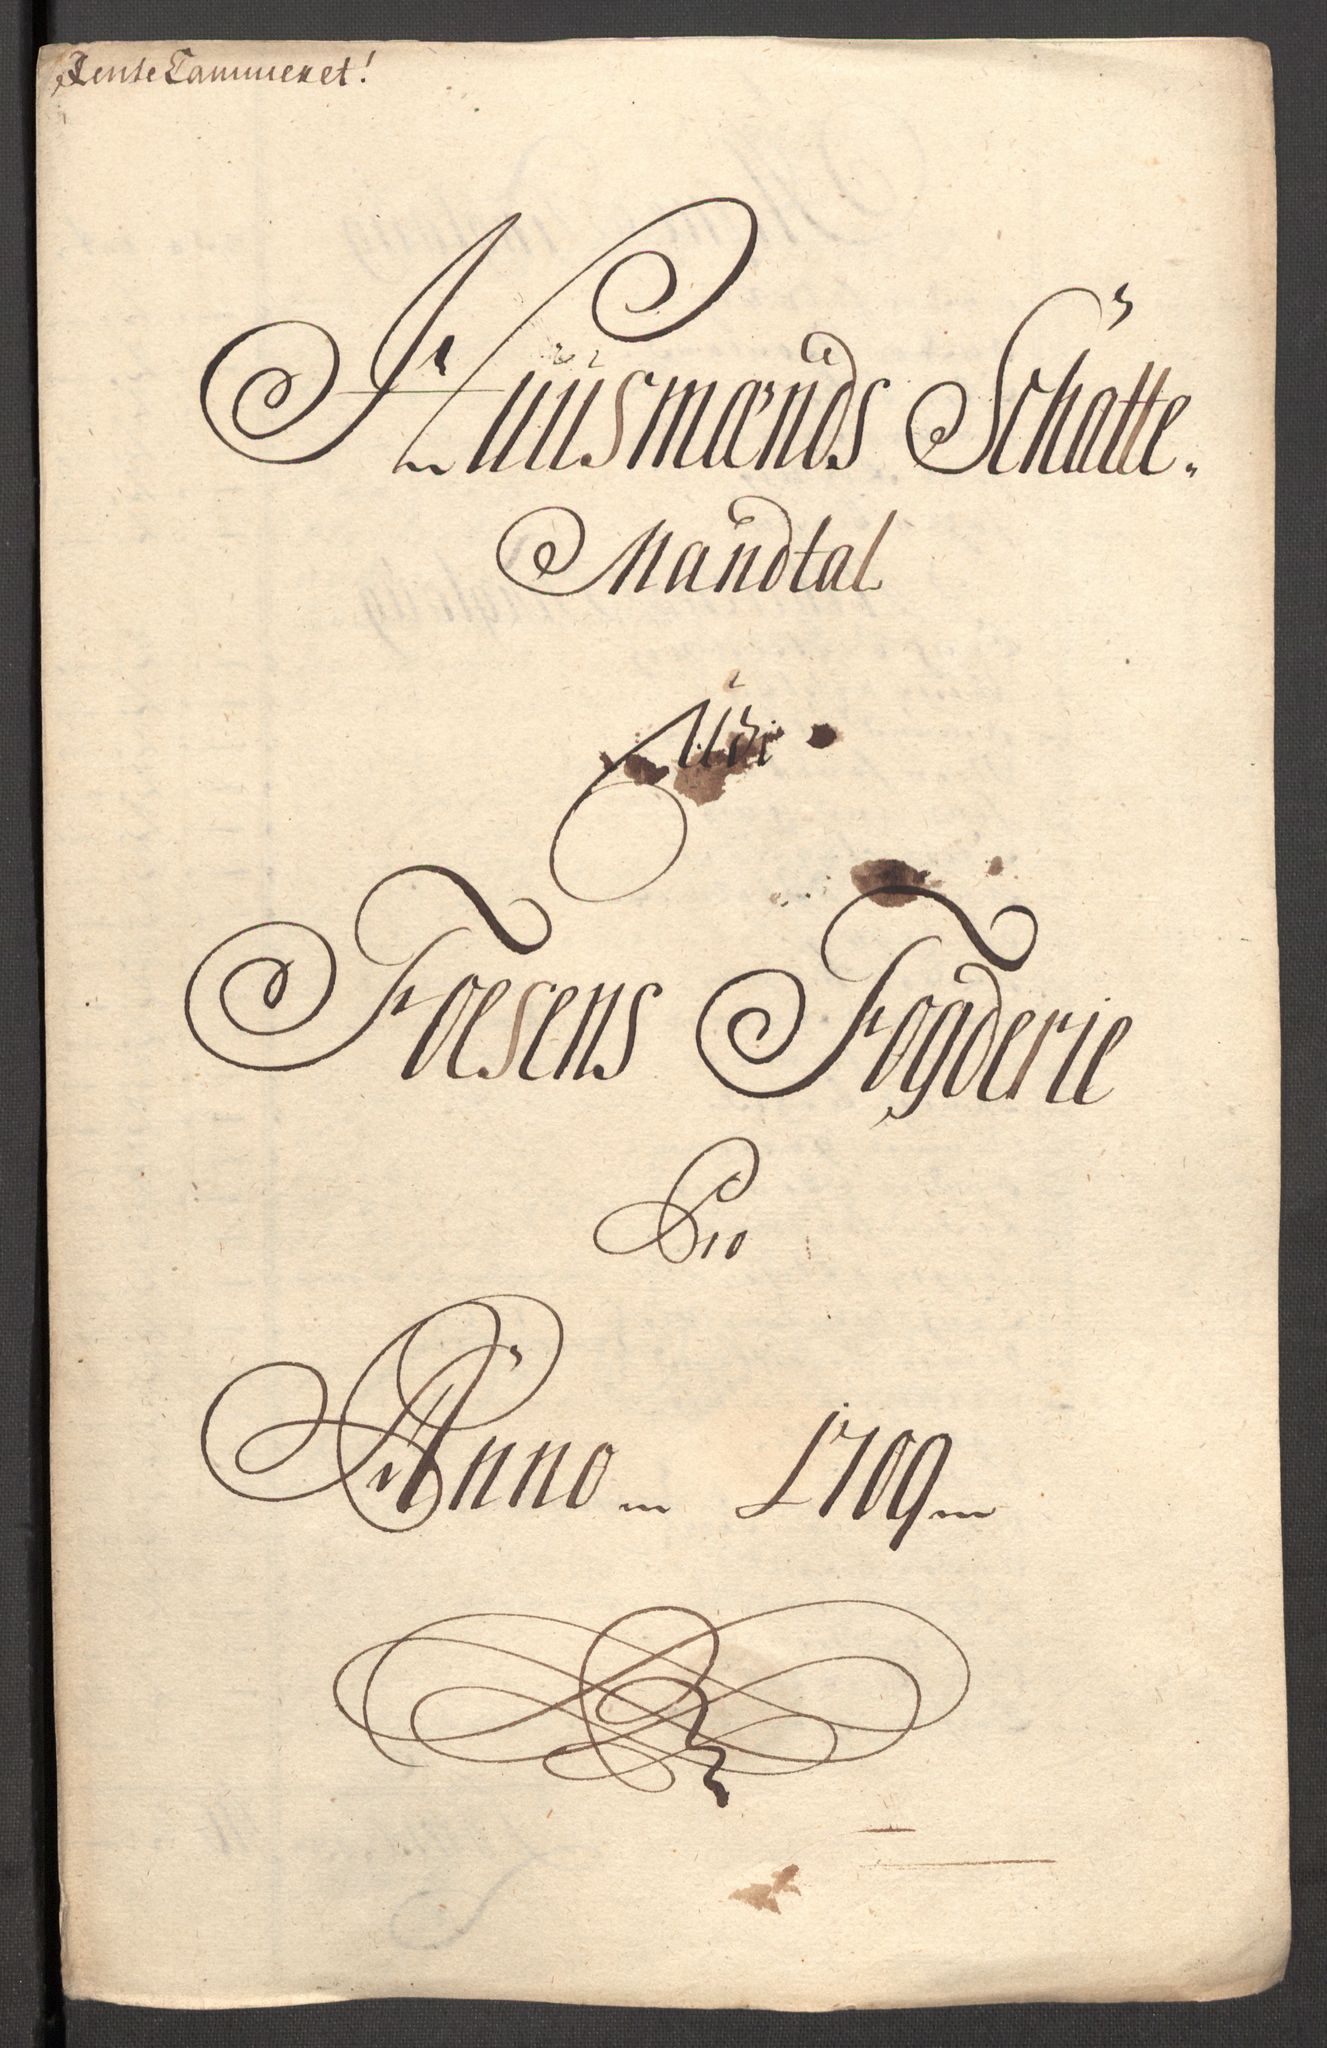 Rente Cammeret!
Huusmænds Schatte
Mandtal
Fosens Fogderie
Pro
Anno 1709